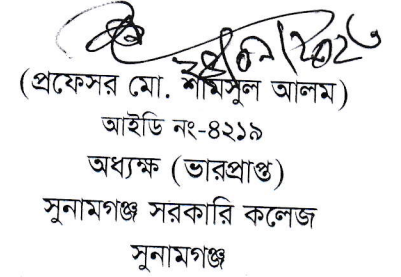 (প্রফেসর মো. শামসুল আলম)
আইডি নং-৪২১৯
অধ্যক্ষ (ভারপ্রাপ্ত)
সুনামগঞ্জ সরকারি কলেজ
সুনামগঞ্জ